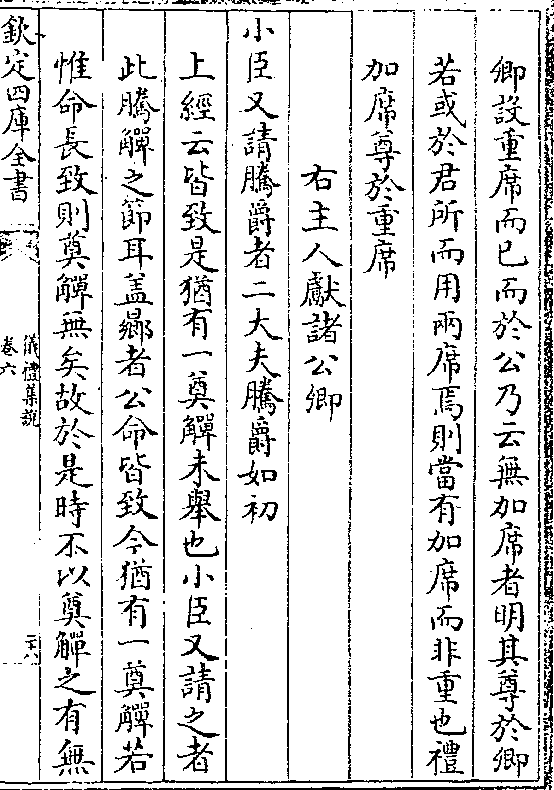 卿設重席而已而於公乃云無加席者明其尊於卿
若或於君所而用兩席焉則當有加席而非重也禮
加席尊於重席
右主人獻諸公卿
小臣又請騰爵者二大夫騰爵如初
上經云皆致是猶有一奠觶未舉也小臣又請之者
此騰觶之節耳盖曏者公命皆致今猶有一奠觶若
惟命長致則奠觶無矣故於是時不以奠觶之有無
欽定四庫全書
儀禮集說
卷六